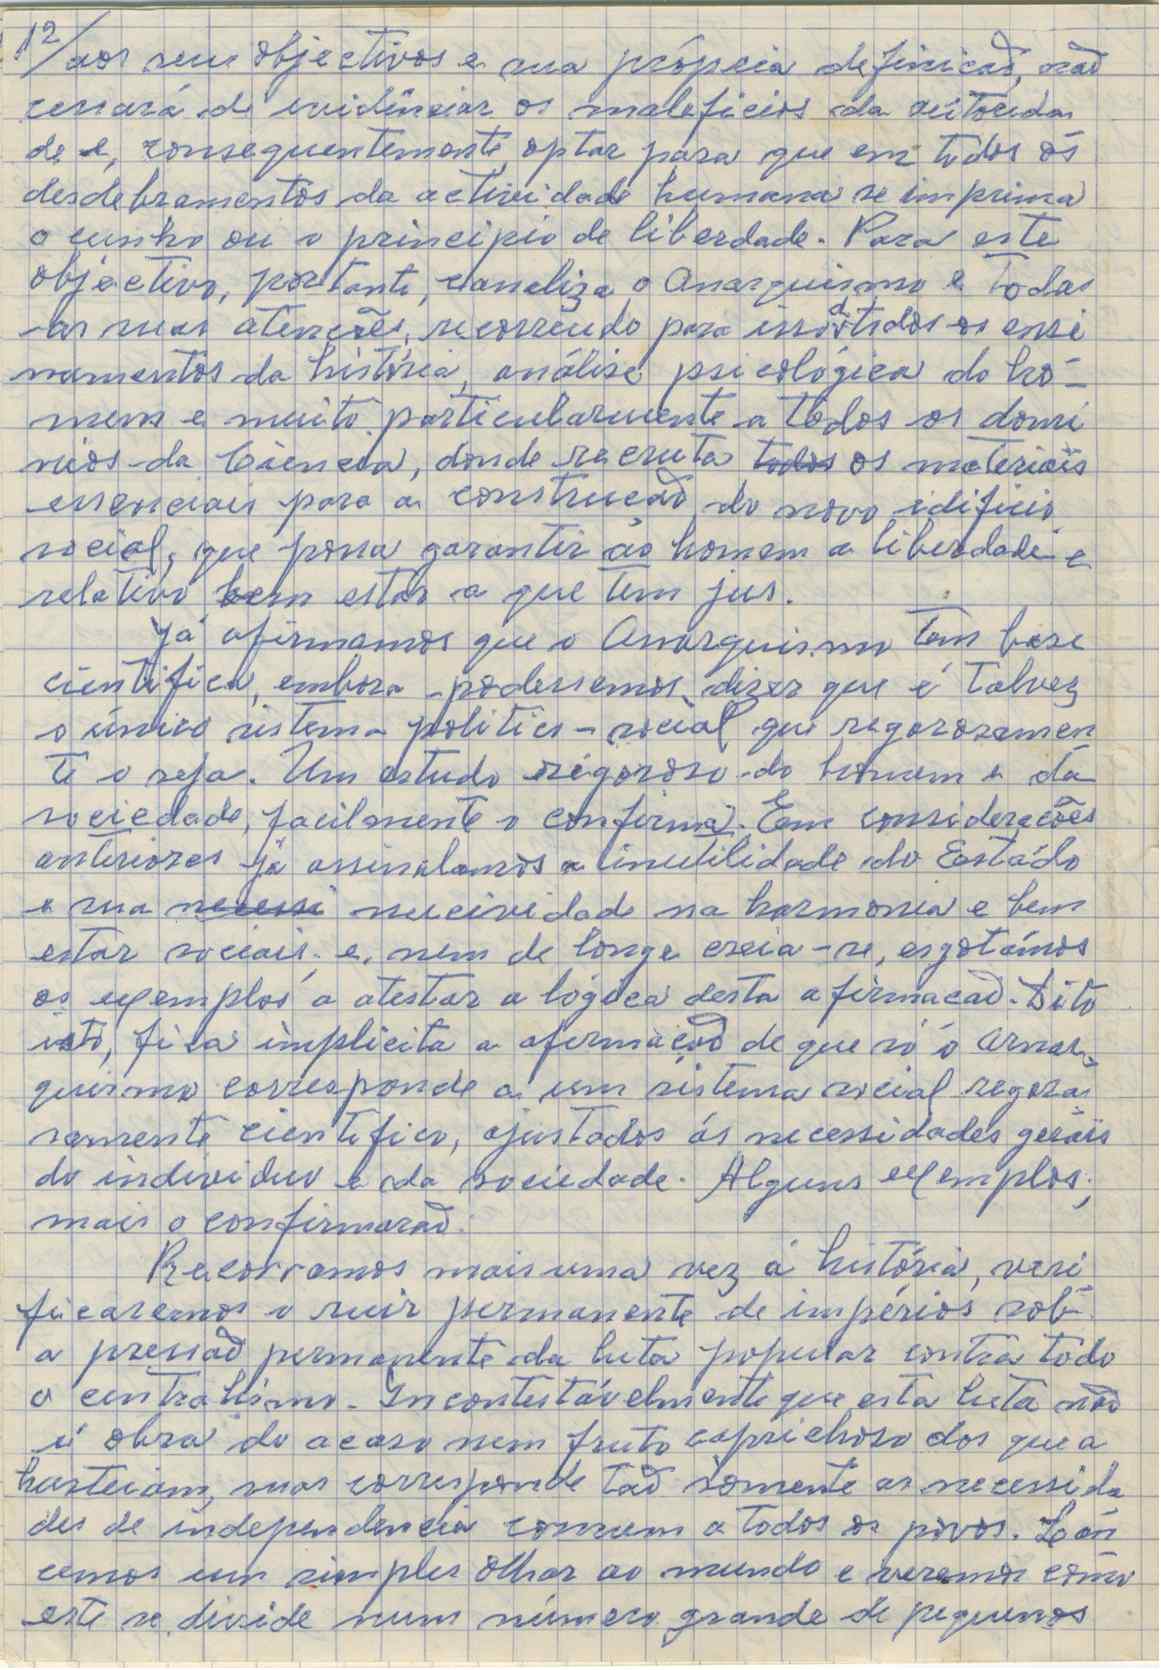 12/
aos seus objectivos e sua própria definição, não
cessará de evidênciar os maleficios da autorida
de e, consequentemente, optar para que em todos os
desdobramentos da actividade humana se imprima
o cunho ou o principio de liberdade. Para este
objectivo, portanto, canaliza o Anarquismo e todas
as suas atenções, recorrendo para isso a todos os ensi
namentos da história, análise psicológica do ho-
mem e muito particularmente a todos os domi
nios da Ciência, donde recruta todos os materiais
essenciais para a construção do novo edificio
social, que possa garantir ao homem a liberdade e
relativo bem estar a que tem jus.
Já afirmamos que o Anarquismo tem base
cientifica, embora podessemos dizer que é talvez
o único sistema politico-social que regorosamen
te o seja. Um estudo rigoroso do homem e da
sociedade, facilmente o confirma. Em considerações
anteriores já assinalamos a inutilidade do Estado
e sua necessi nucividade na harmonia e bem
estar sociais e, nem de longe creia-se, esgotámos
os exemplos a atestar a lógica desta afirmação. Dito
isto, fica implicita a afirmação de que só o Anar
quismo corresponde a um sistema social regoro
samente cientifico, ajustados ás necessidades gerais
do individuo e da sociedade. Alguns exemplos,
mais o confirmarão.
Recorramos mais uma vez á história, veri
ficaremos o ruir permanente de impérios sob
a pressão permanente da luta popular contra todo
o centralismo. Incontestávelmente que esta luta não
é obra do acaso nem fruto caprichoso dos que a
hasteiam, mas corresponde tão sómente as necessida
des de independencia comum a todos os povos. Lan
cemos um simples olhar ao mundo e veremos como
este se divide num número grande de pequenos